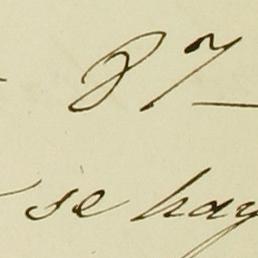 87
se hay